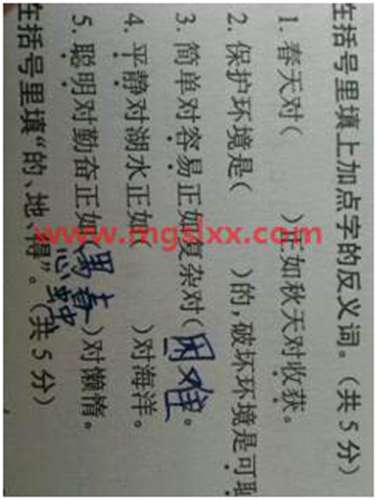 括号里填上加点字的反义词。(共5分)
1. 春天对( )正如秋天对收获。
2. 保护环境是( )的,破坏环境是可
3. 简单对容易正如复杂对(困难)。
4. 平静对湖水正如( )对海洋。
5. 聪明对勤奋正如( )对懒惰。
括号里填“的、地、得”。(共5分)
www.mgslxx.com